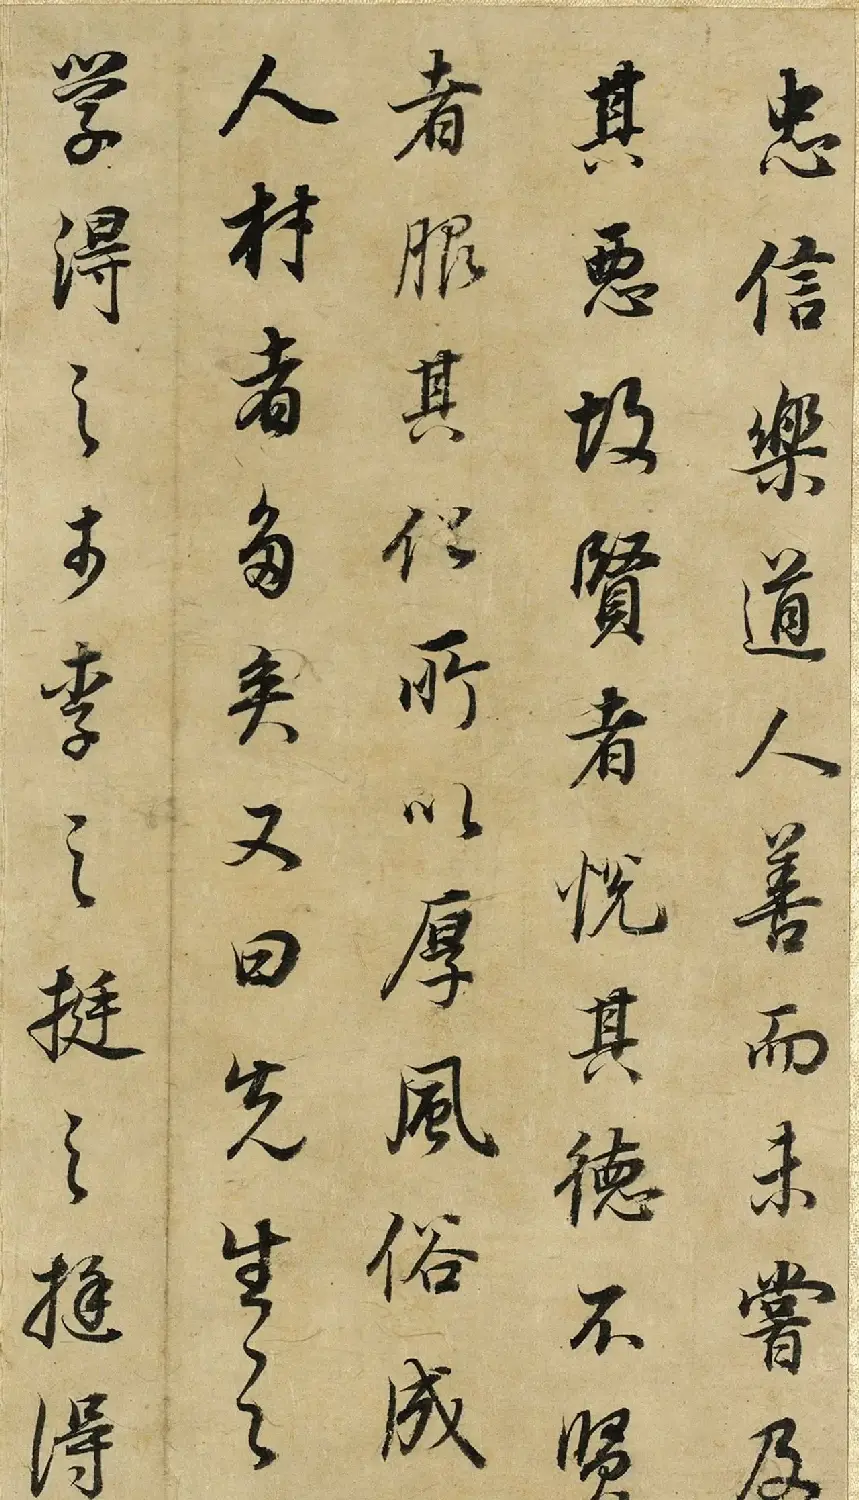 忠信樂道人善而未嘗及
其惡故賢者悅其德不賢
者服其化所以厚風俗成
人材者多矣又曰先生之
学得之於李之挺之挺得